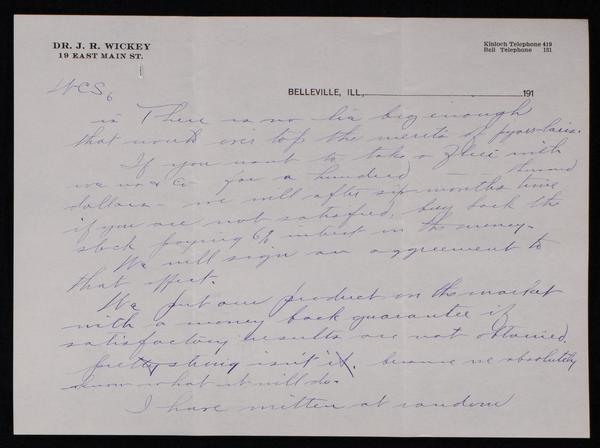 DR. J. R. WICKEY
19 EAST MAIN ST.
Kinloch Telephone 419
Bell Telephone 151
BELLEVILLE, ILL., 191
is There is no lie big enough
that would over top the merits of
If you want to take a with
& Co for a hundred thousand
dollars - we will after six months time
if you are not satisfied, buy back the
stock paying 6% interest on the money.
We will sign an aggreement to
that effect.
We put our product on the market
with a money back guarantee if
satisfactory results are not obtained.
pretty strong isn't it. because we absolutely
know what it will do.
I have written at random